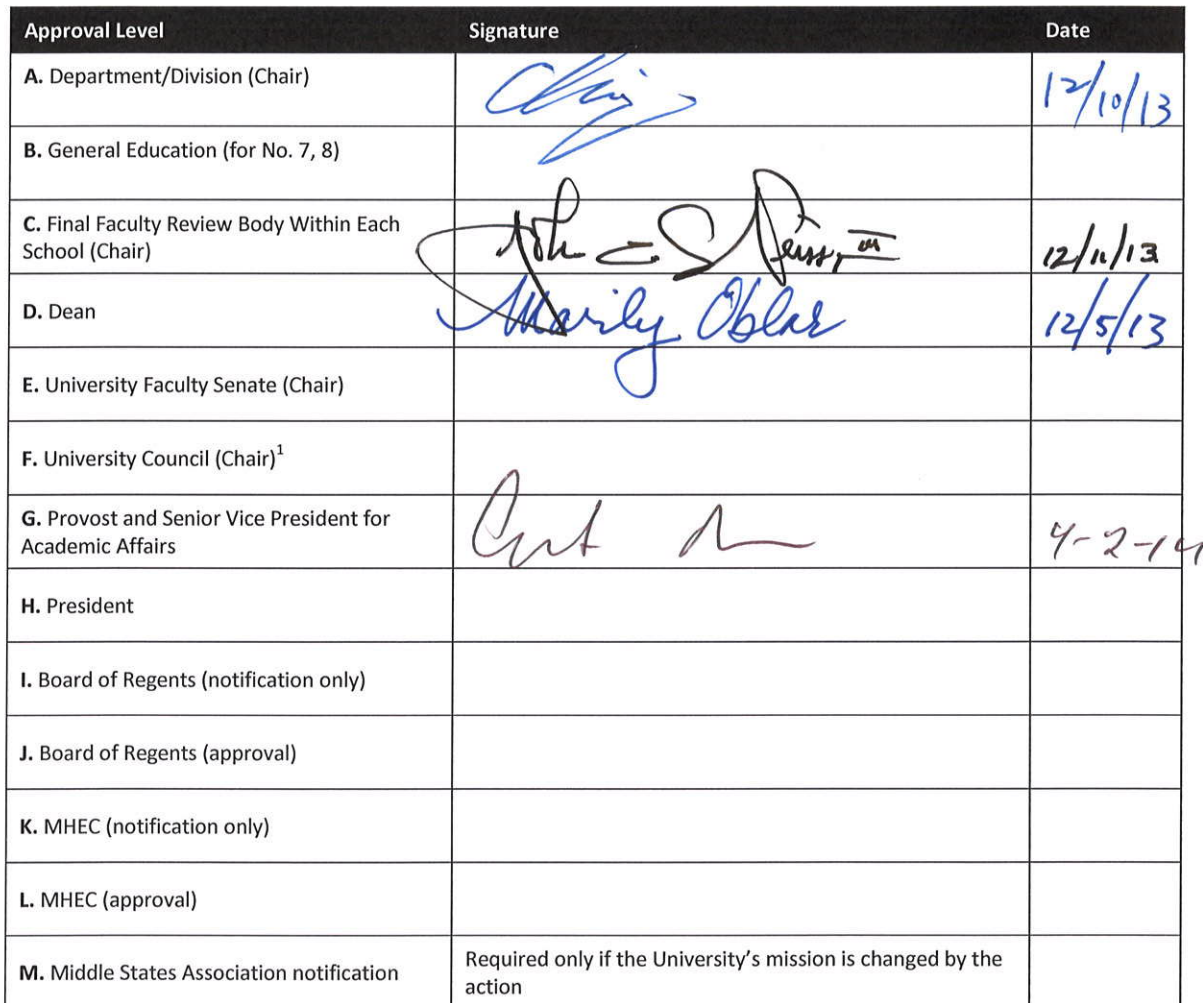 Approval Level Signature Date
A. Department/Division (Chair) 12/10/13
B. General Education (for No. 7, 8)
C. Final Faculty Review Body Within Each
School (Chair) John 12/11/13
D. Dean Marily 12/5/13
E. University Faculty Senate (Chair)
F. University Council (Chair)¹
G. Provost and Senior Vice President for
Academic Affairs 4-2-14
H. President
I. Board of Regents (notification only)
J. Board of Regents (approval)
K. MHEC (notification only)
L. MHEC (approval)
M. Middle States Association notification Required only if the University's mission is changed by the
action